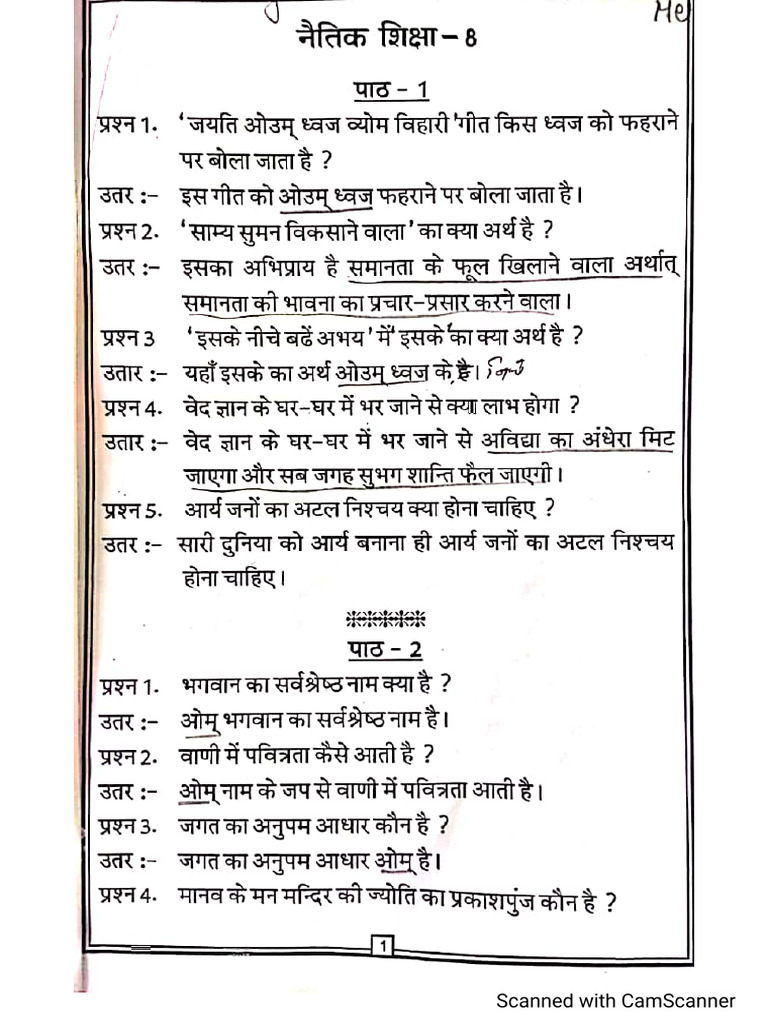 He
नैतिक शिक्षा - 8
पाठ - 1
प्रश्न 1. 'जयति ओउम् ध्वज व्योम विहारी' गीत किस ध्वज को फहराने
पर बोला जाता है ?
उतर :- इस गीत को ओउम् ध्वज फहराने पर बोला जाता है।
प्रश्न 2. 'साम्य सुमन विकसाने वाला' का क्या अर्थ है ?
उतर :- इसका अभिप्राय है समानता के फूल खिलाने वाला अर्थात्
समानता की भावना का प्रचार-प्रसार करने वाला।
प्रश्न 3 'इसके नीचे बढें अभय' में 'इसके' का क्या अर्थ है ?
उतार :- यहाँ इसके का अर्थ ओउम् ध्वज के है।
प्रश्न 4. वेद ज्ञान के घर-घर में भर जाने से क्या लाभ होगा ?
उतार :- वेद ज्ञान के घर-घर में भर जाने से अविद्या का अंधेरा मिट
जाएगा और सब जगह सुभग शान्ति फैल जाएगी।
प्रश्न 5. आर्य जनों का अटल निश्चय क्या होना चाहिए ?
उतर :- सारी दुनिया को आर्य बनाना ही आर्य जनों का अटल निश्चय
होना चाहिए।
पाठ - 2
प्रश्न 1. भगवान का सर्वश्रेष्ठ नाम क्या है ?
उतर :- ओम् भगवान का सर्वश्रेष्ठ नाम है।
प्रश्न 2. वाणी में पवित्रता कैसे आती है ?
उतर :- ओम् नाम के जप से वाणी में पवित्रता आती है।
प्रश्न 3. जगत का अनुपम आधार कौन है ?
उतर :- जगत का अनुपम आधार ओम् है।
प्रश्न 4. मानव के मन मन्दिर की ज्योति का प्रकाशपुंज कौन है ?
1
Scanned with CamScanner